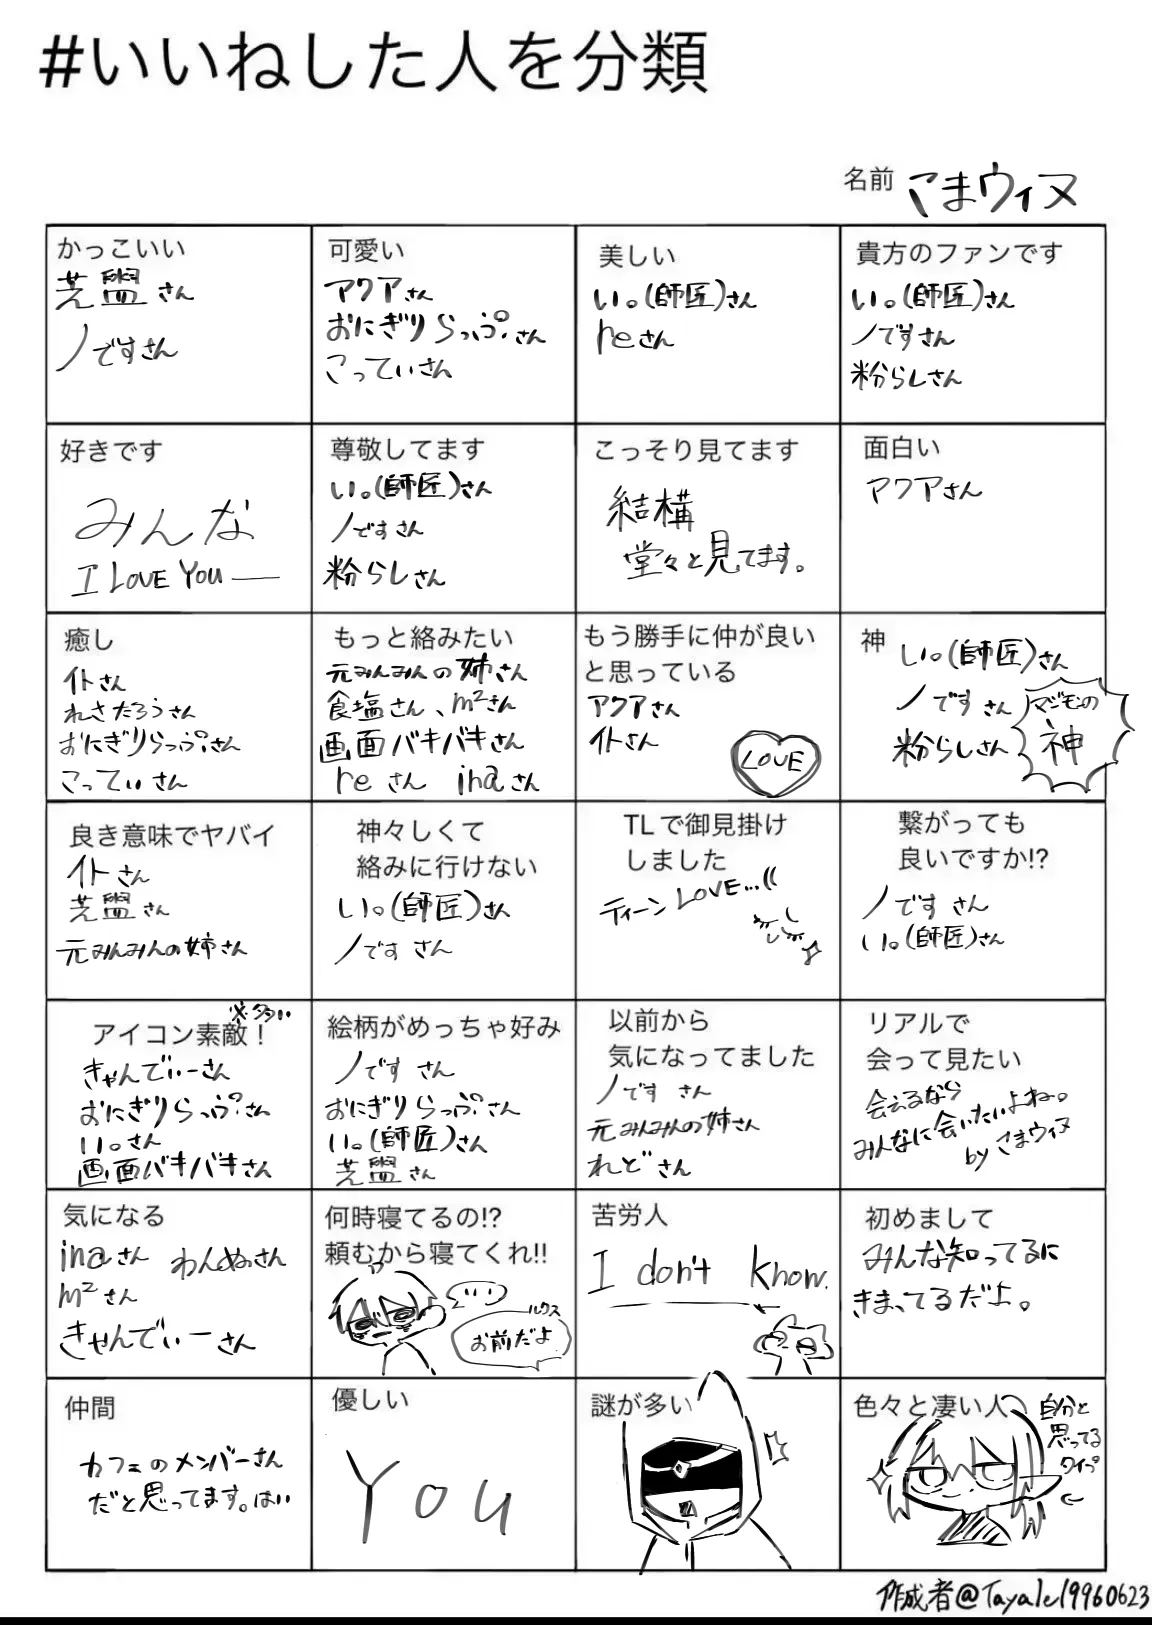 #いいねした人を分類
名前 こまウィヌ
かっこいい
さん
ノですさん
可愛い
アクアさん
おにぎりらっぷさん
こってぃさん
美しい
い。(師匠)さん
reさん
貴方のファンです
い。(師匠)さん
ノですさん
粉らしさん
好きです
みんな
I LOVE YOU
尊敬してます
い。(師匠)さん
ノですさん
粉らしさん
こっそり見てます
結構
堂々と見てます。
面白い
アクアさん
癒し
さん
れさたろうさん
おにぎりらっぷさん
こってぃさん
もっと絡みたい
元みんみんの姉さん
食塩さん、m²さん
画面バキバキさん
reさん inaさん
もう勝手に仲が良い
と思っている
アクアさん
さん
LOVE
神
い。(師匠)さん
ノですさん
粉らしさん
マジモンの
神
良き意味でヤバイ
さん
さん
元みんみんの姉さん
神々しくて
絡みに行けない
い。(師匠)さん
ノですさん
TLで御見掛け
しました
ティーンLOVE...((
繋がっても
良いですか!?
ノですさん
い。(師匠)さん
※多い
アイコン素敵!
きゃんでぃーさん
おにぎりらっぷさん
い。さん
画面バキバキさん
絵柄がめっちゃ好み
ノですさん
おにぎりらっぷさん
い。(師匠)さん
さん
以前から
気になってました
ノですさん
元みんみんの姉さん
れどさん
リアルで
会って見たい
会えるなら
みんなに会いたいよね。
by こまウィヌ
気になる
inaさん わんぬさん
m²さん
きゃんでぃーさん
何時寝てるの!?
頼むから寝てくれ!!
お前だよ
苦労人
I don't know.
初めまして
みんな知ってるに
きまってるだよ。
仲間
カフェのメンバーさん
だと思ってます。はい
優しい
You
謎が多い
色々と凄い人
自分と
思ってる
ワイプ
作成者@Tayale19960623